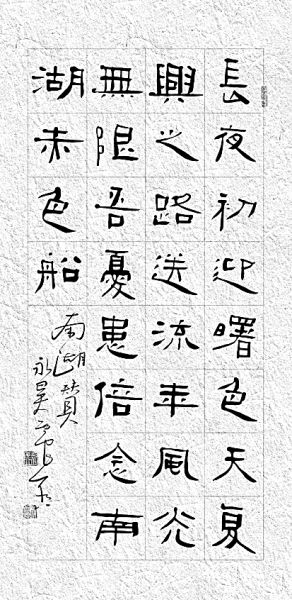 長夜初迎曙色天复
興之路送流年風光
無限吾憂患倍念南
湖赤色船
南湖贊